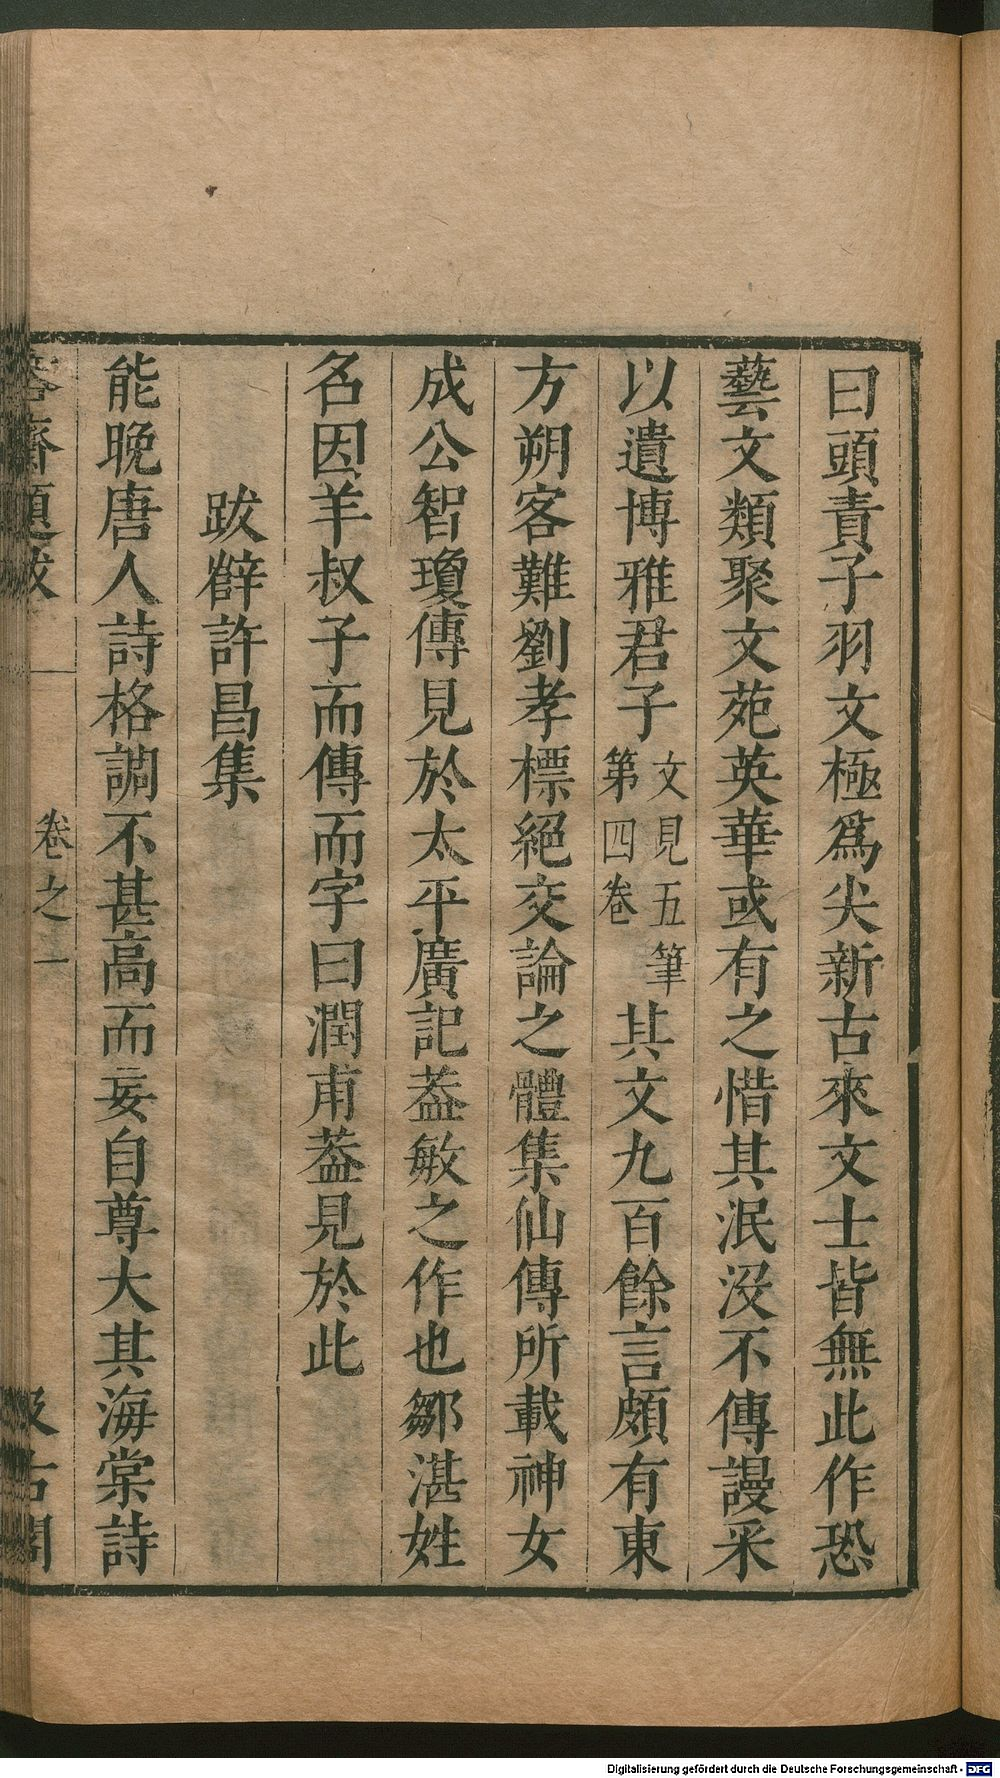 曰頭責子羽文極爲尖新古來文士皆無此作恐
藝文類聚文苑英華或有之惜其泯沒不傳謾采
以遺博雅君子文見五筆第四卷其文九百餘言頗有東
方朔客難劉孝標絕交論之體集仙傳所載神女
成公智瓊傳見於太平廣記葢敏之作也鄒湛姓
名因羊叔子而傳而字曰潤甫葢見於此
跋薛許昌集
能晚唐人詩格調不甚高而妄自尊大其海棠詩
容齋題跋 卷之一 汲古閣
Digitalisierung gefördert durch die Deutsche Forschungsgemeinschaft - DFG